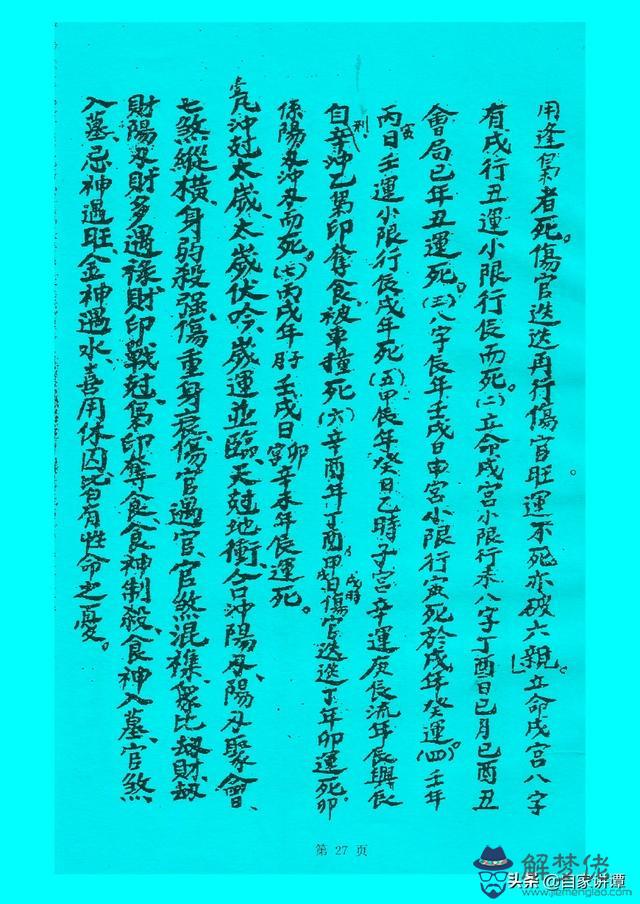 用逢梟者死。傷官迭迭再行傷官旺運不死亦破六親。立命戌宮八字
有戌行丑運小限行辰而死。(二)立命戌宮小限行未八字丁酉日巳月巳酉丑
會局巳年丑運死。(三)八字辰年壬戌日申宮小限行寅死於戌年癸運(四)。壬年
丙寅日壬運小限行辰戌年死(五)甲辰年癸日乙時子宮辛運庚辰流年辰與辰
自刑辛沖乙梟印奪食、被車撞死(六)辛酉年丁酉月甲戌日戌時傷官迭迭丁年卯運死卯
係陽刃沖刃而死。(七)丙戌年 壬戌日卯宮辛未年辰運死。
凡沖尅太歲、太歲伏吟、歲運並臨、天尅地衝、合沖陽刃、陽刃聚會、
七煞縱橫、身弱殺强、傷重身衰、傷官遇官、官煞混襍、眾比刼財、刼
財陽刃、財多遇祿、財印戰尅、梟印奪食、食神制殺、食神入墓、官煞
入墓、忌神遇旺、金神遇水、喜用休囚、皆有性命之憂。
第 27 页
解梦佬
www.jiemenglao.com
头条 @自家讲谭